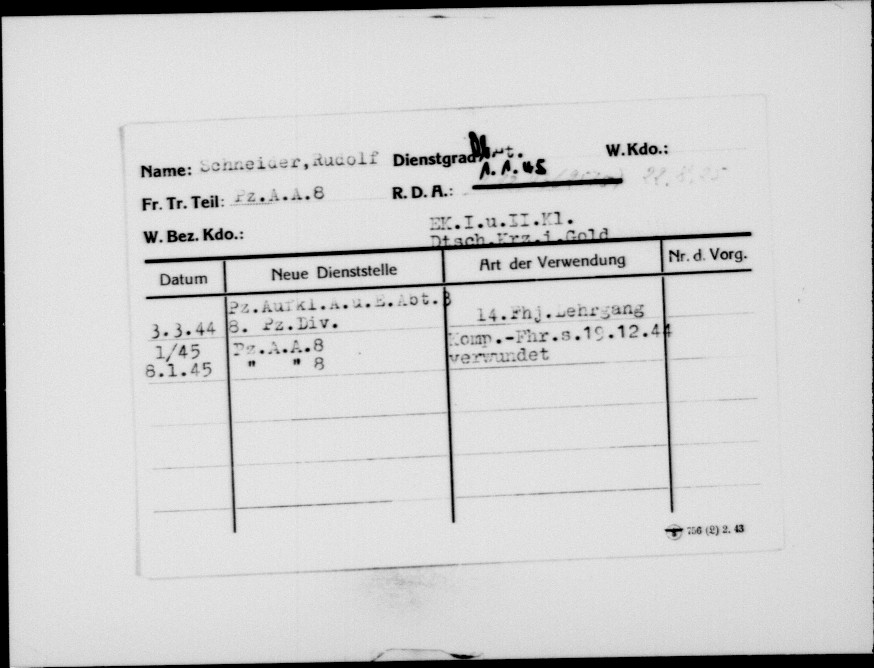 Name: Schneider,Rudolf Dienstgrad: W.Kdo.:
1.1.45
Fr. Tr. Teil: Pz.A.A.8 R. D. A.: 22.8.25
W. Bez. Kdo.: EK.I.u.II.Kl.
Dtsch.Krz.i.Gold
Datum Neue Dienststelle Art der Verwendung Nr. d. Vorg.
Pz.Aufkl.A.u.E.Abt.3 14.Fhj.Lehrgang
3.3.44 8. Pz.Div.
1/45 Pz.A.A.8 Komp.-Fhr.s.19.12.44
8.1.45 " " 8 verwundet
756 (2) 2. 43